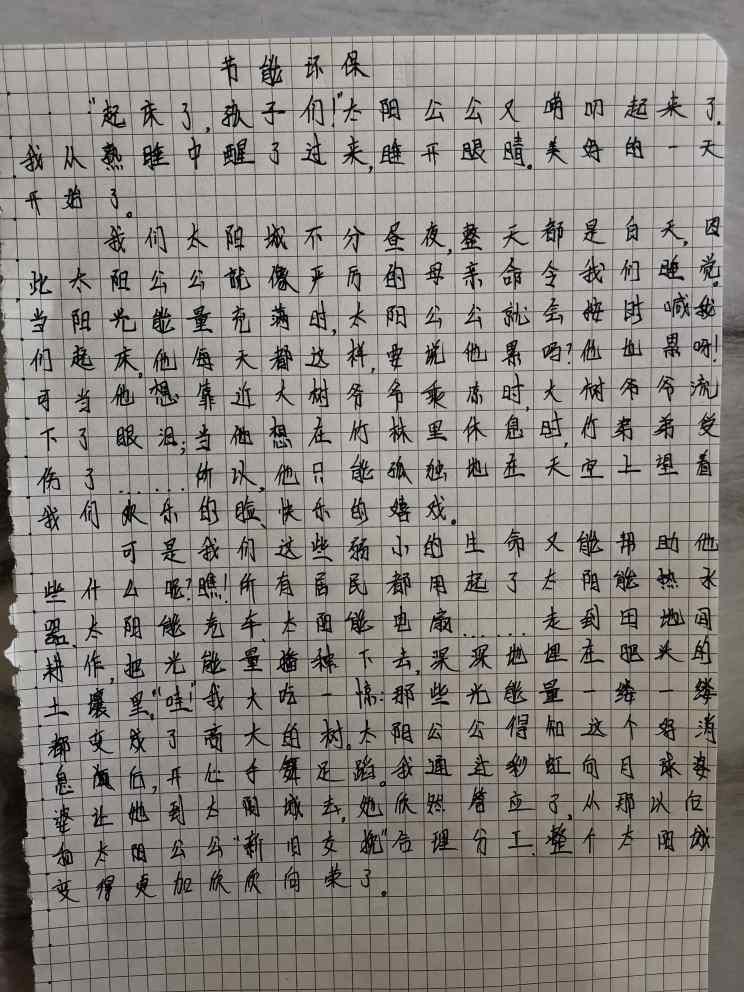 节能环保
“起床了,孩子们!”太阳公公又哨叨起来了.
我从熟睡中醒了过来,睡开眼睛。美好的一天
开始了。
我们太阳城不分昼夜,整天都是白天,因
此太阳公公就像严厉的母亲命令我们睡觉。
当阳光能量充满时,太阳公公就会按时喊我
们起床,他每天都这样,要说他累吗?他也累呀!
可当他想靠近大树爷爷乘凉时,大树爷爷流
下了眼泪;当他想在竹林里休息时,竹弟弟受
伤了……所以,他只能孤独地在天空上望着
我们欢乐的脸、快乐的嬉戏。
可是我们这些弱小的生命又能帮助他
些什么呢?瞧!所有居民都用起了太阳能热水
器、太阳能汽车、太阳能电扇……走到田地间
耕作,把光能量播种下去,深深地埋在肥沃的
土壤里。“哇!”我大吃一惊:那些光能量一缕一缕
都变成了高大的树。太阳公公得知这个好消
息后,开心手舞足蹈。我通过彩虹向月球婆
婆让她到太阳城去,她欣然答应了,从那以后
和太阳公公“新旧交换”合理分工.整个太阳城
变得更加欣欣向荣了。